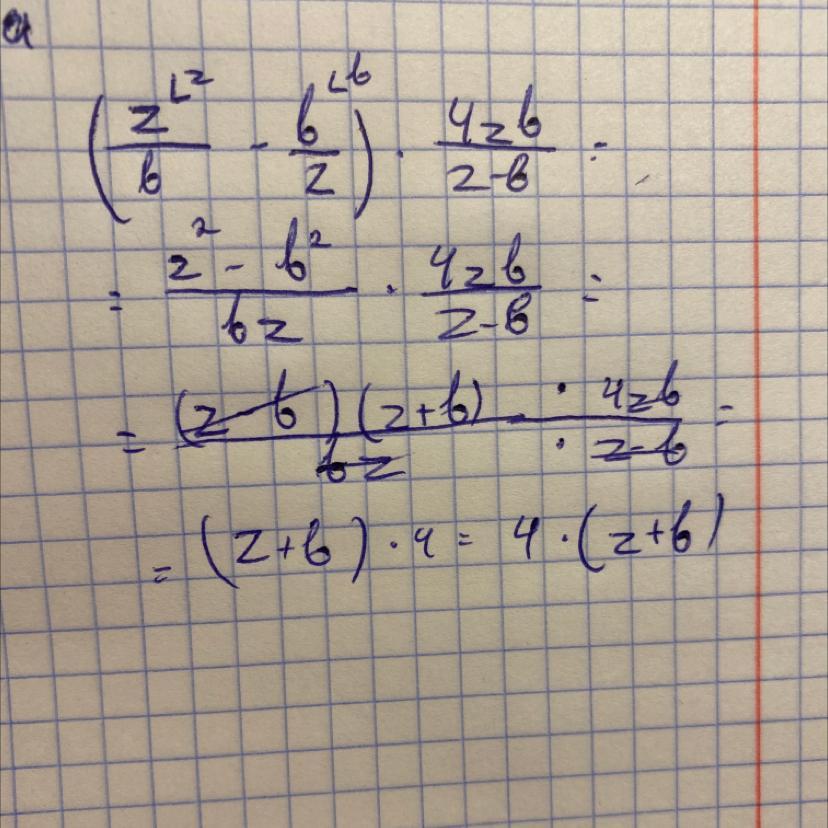 (z^{∟z}/b - b^{∟b}/z) · 4zb/(z-b) =
= (z² - b²)/(bz) · 4zb/(z-b) =
= (z-b)(z+b) · 4zb / bz · z-b =
= (z+b) · 4 = 4 · (z+b)